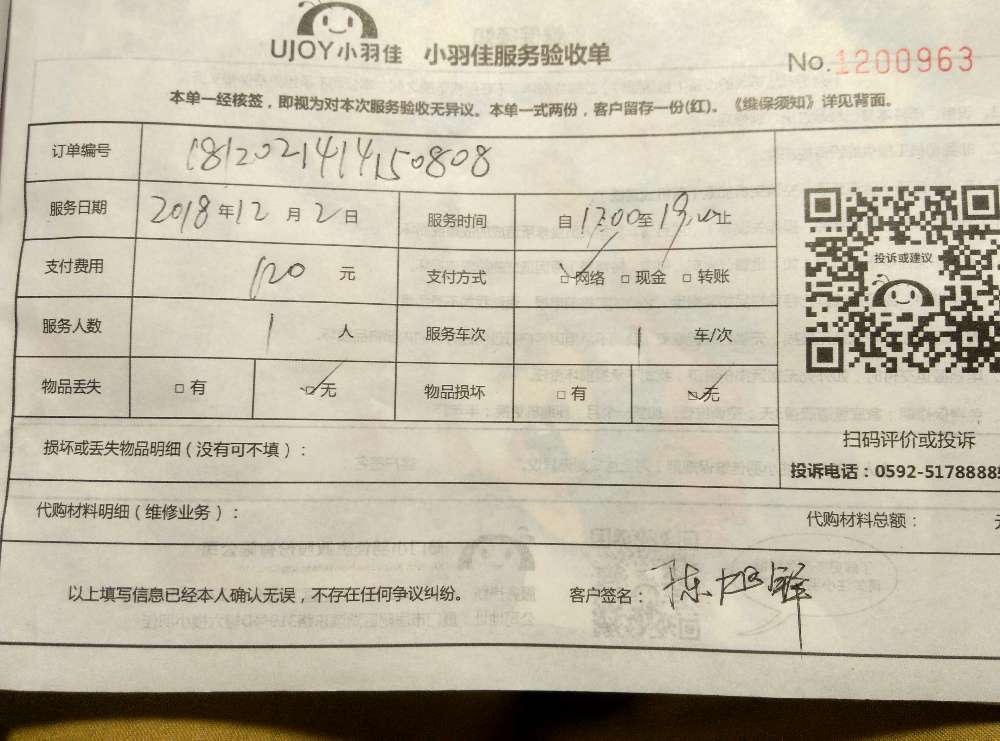 UJOY小羽佳 小羽佳服务验收单
No.1200963
本单一经核签，即视为对本次服务验收无异议。本单一式两份，客户留存一份(红)。《维保须知》详见背面。
订单编号 181202141450808
服务日期 2018年12月2日 服务时间 自17:00至19:00止
投诉或建议
支付费用 120元 支付方式 □网络 □现金 □转账
服务人数 1人 服务车次 1车/次
物品丢失 □有 □无 物品损坏 □有 □无
扫码评价或投诉
损坏或丢失物品明细(没有可不填)：
投诉电话：0592-5178888
代购材料明细(维修业务)：
代购材料总额：
以上填写信息已经本人确认无误，不存在任何争议纠纷。 客户签名：陈